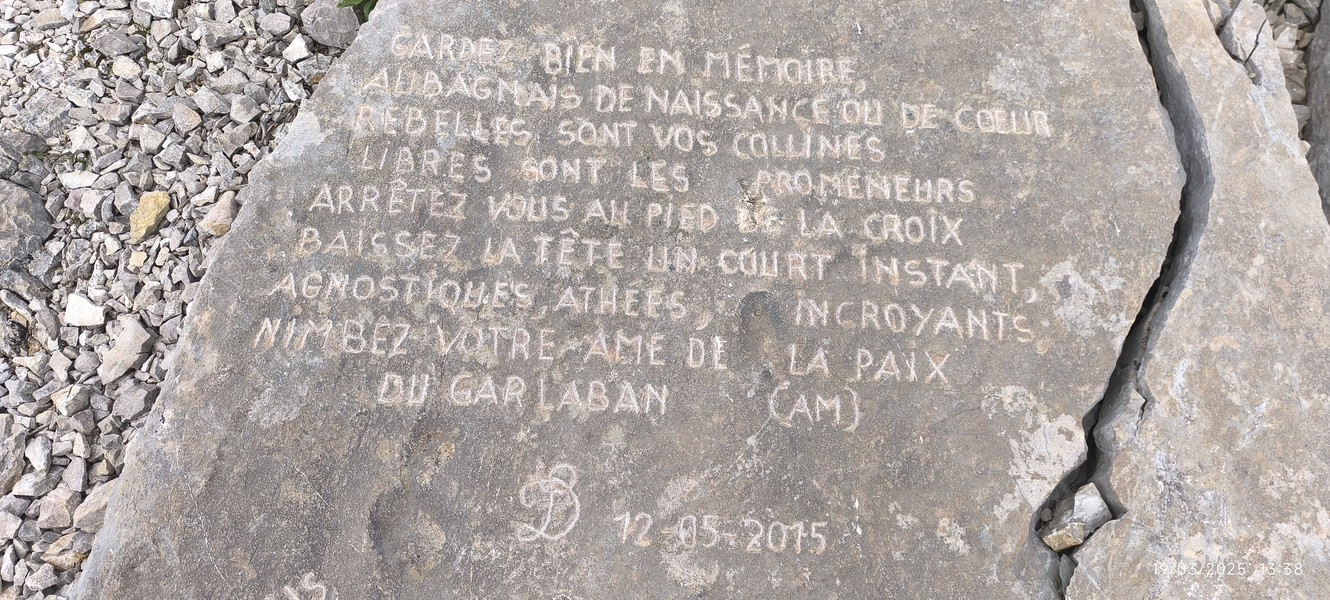 GARDEZ BIEN EN MÉMOIRE,
AUBAGNAIS DE NAISSANCE OU DE COEUR
REBELLES SONT VOS COLLINES
LIBRES SONT LES PROMENEURS
ARRÊTEZ VOUS AU PIED DE LA CROIX
BAISSEZ LA TÊTE UN COURT INSTANT,
AGNOSTIQUES, ATHEES, INCROYANTS
NIMBEZ VOTRE AME DE LA PAIX
DU GARLABAN (AM)
12-05-2015
19/03/2025 13:38